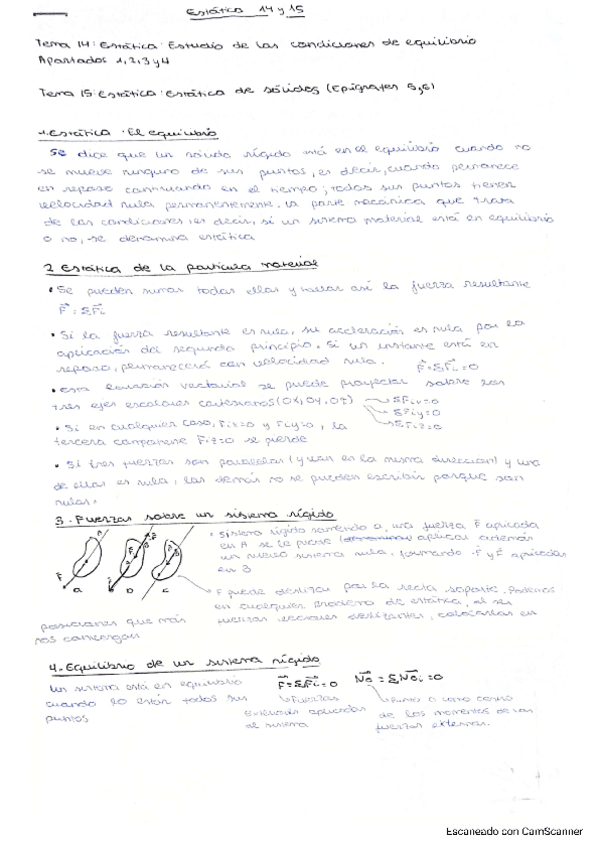 Estática 14 y 15
Tema 14: Estática: Estudio de las condiciones de equilibrio
Apartados 1, 2, 3 y 4
Tema 15: Estática: Estática de sólidos (Epígrafes 5, 6)
1. Estática: El equilibrio
Se dice que un sólido rígido está en el equilibrio cuando no
se mueve ninguno de sus puntos, es decir, cuando permanece
en reposo continuando en el tiempo; todos sus puntos tienen
velocidad nula permanentemente. La parte mecánica que trata
de las condiciones, es decir, si un sistema material está en equilibrio
o no, se denomina estática
2. Estática de la partícula material
• Se pueden sumar todas ellas y hallar así la fuerza resultante
F⃗ = ΣF⃗i
• Si la fuerza resultante es nula, su aceleración es nula por la
aplicación del segundo principio. Si un instante está en
reposo, permanecerá con velocidad nula. F⃗=ΣF⃗i=0
• Esta ecuación vectorial se puede proyectar sobre los
tres ejes escalares cartesianos (OX, OY, OZ)
ΣFix=0
ΣFiy=0
ΣFiz=0
• Si en cualquier caso, Fix=0 y Fiy=0, la
tercera componente Fiz=0 se pierde
• Si tres fuerzas son paralelas (y van en la misma dirección) y una
de ellas es nula, las demás no se pueden escribir porque son
nulas.
3. Fuerzas sobre un sistema rígido
• Sistema rígido sometido a una fuerza F⃗ aplicada
en A se le puede aplicar además
un nuevo sistema nulo, formando -F⃗ y F⃗ aplicadas
en B
a b c
F puede deslizar por la recta soporte. Podemos
en cualquier problema de estática, al ser
fuerzas vectores deslizantes, colocarlas en
posiciones que más
nos convengan
4. Equilibrio de un sistema rígido
Un sistema está en equilibrio
cuando lo están todos sus
puntos
F⃗=ΣF⃗i=0
Fuerzas
exteriores aplicadas
al sistema
N⃗o = ΣN⃗oi =0
Punto o como centro
de los momentos de las
fuerzas externas.
Escaneado con CamScanner